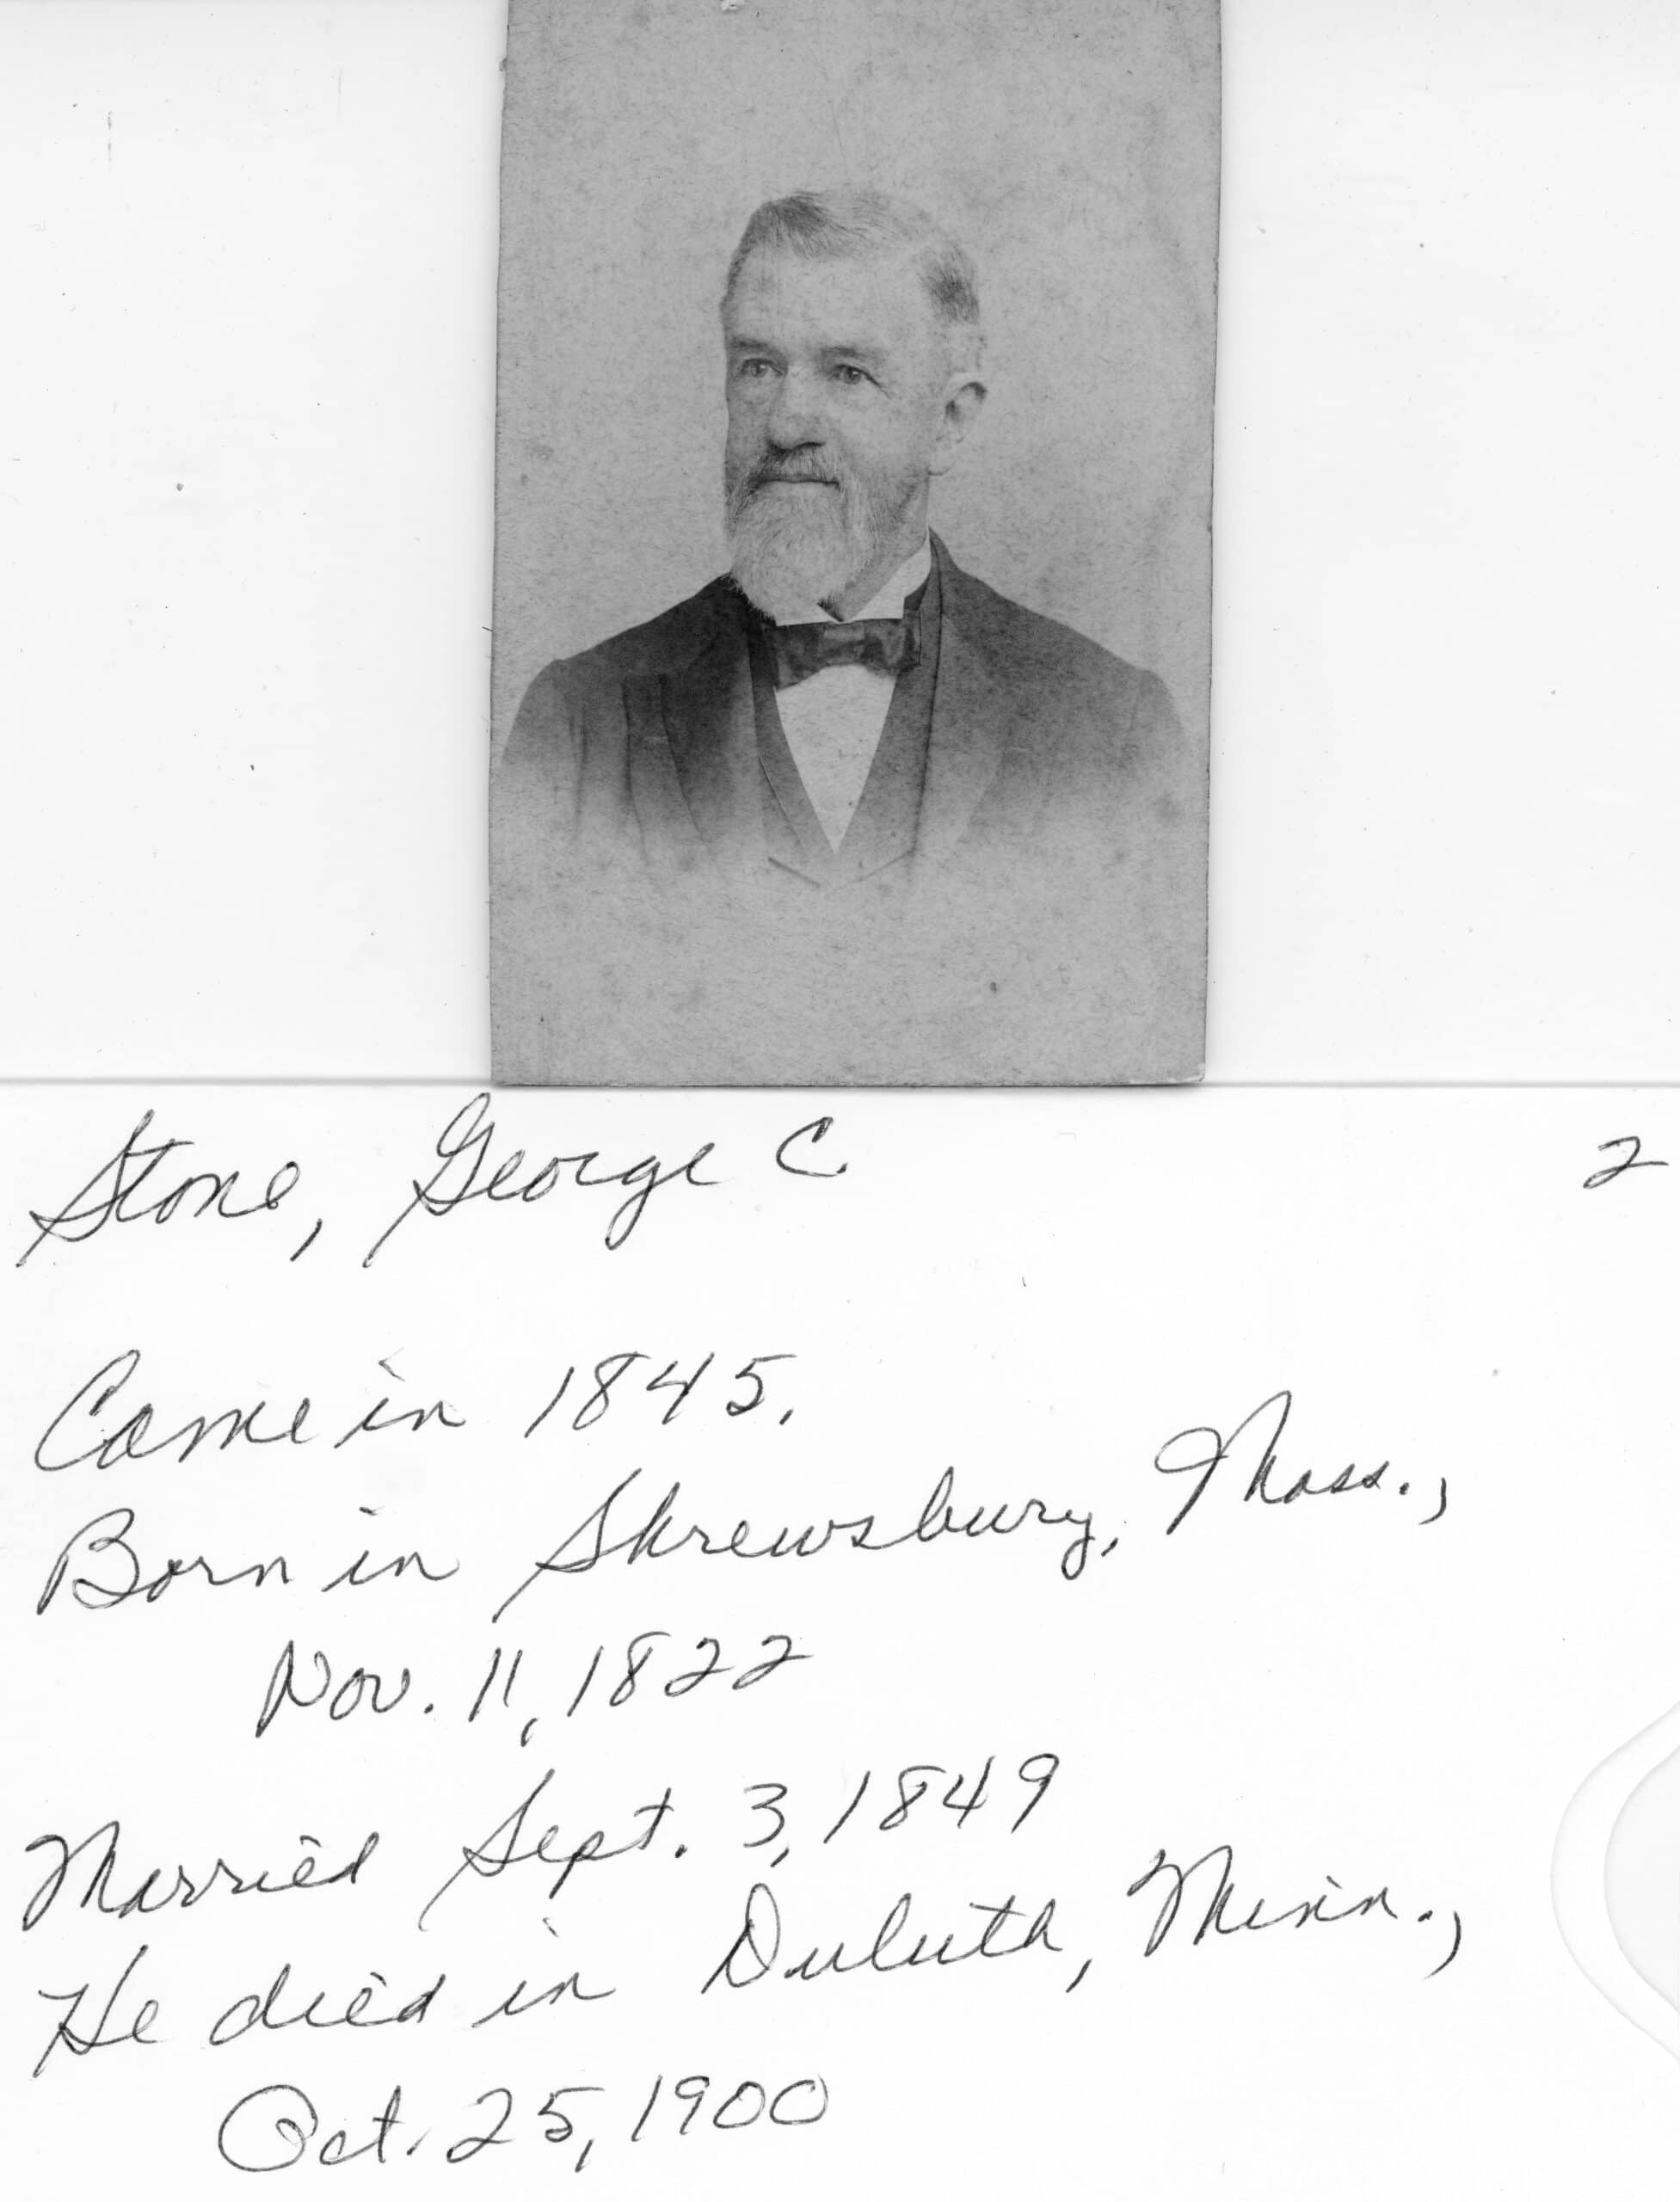 Stone, George C. 2
Came in 1845.
Born in Shrewsbury, Mass.,
Nov. 11, 1822
Married Sept. 3, 1849
He died in Duluth, Minn.,
Oct. 25, 1900